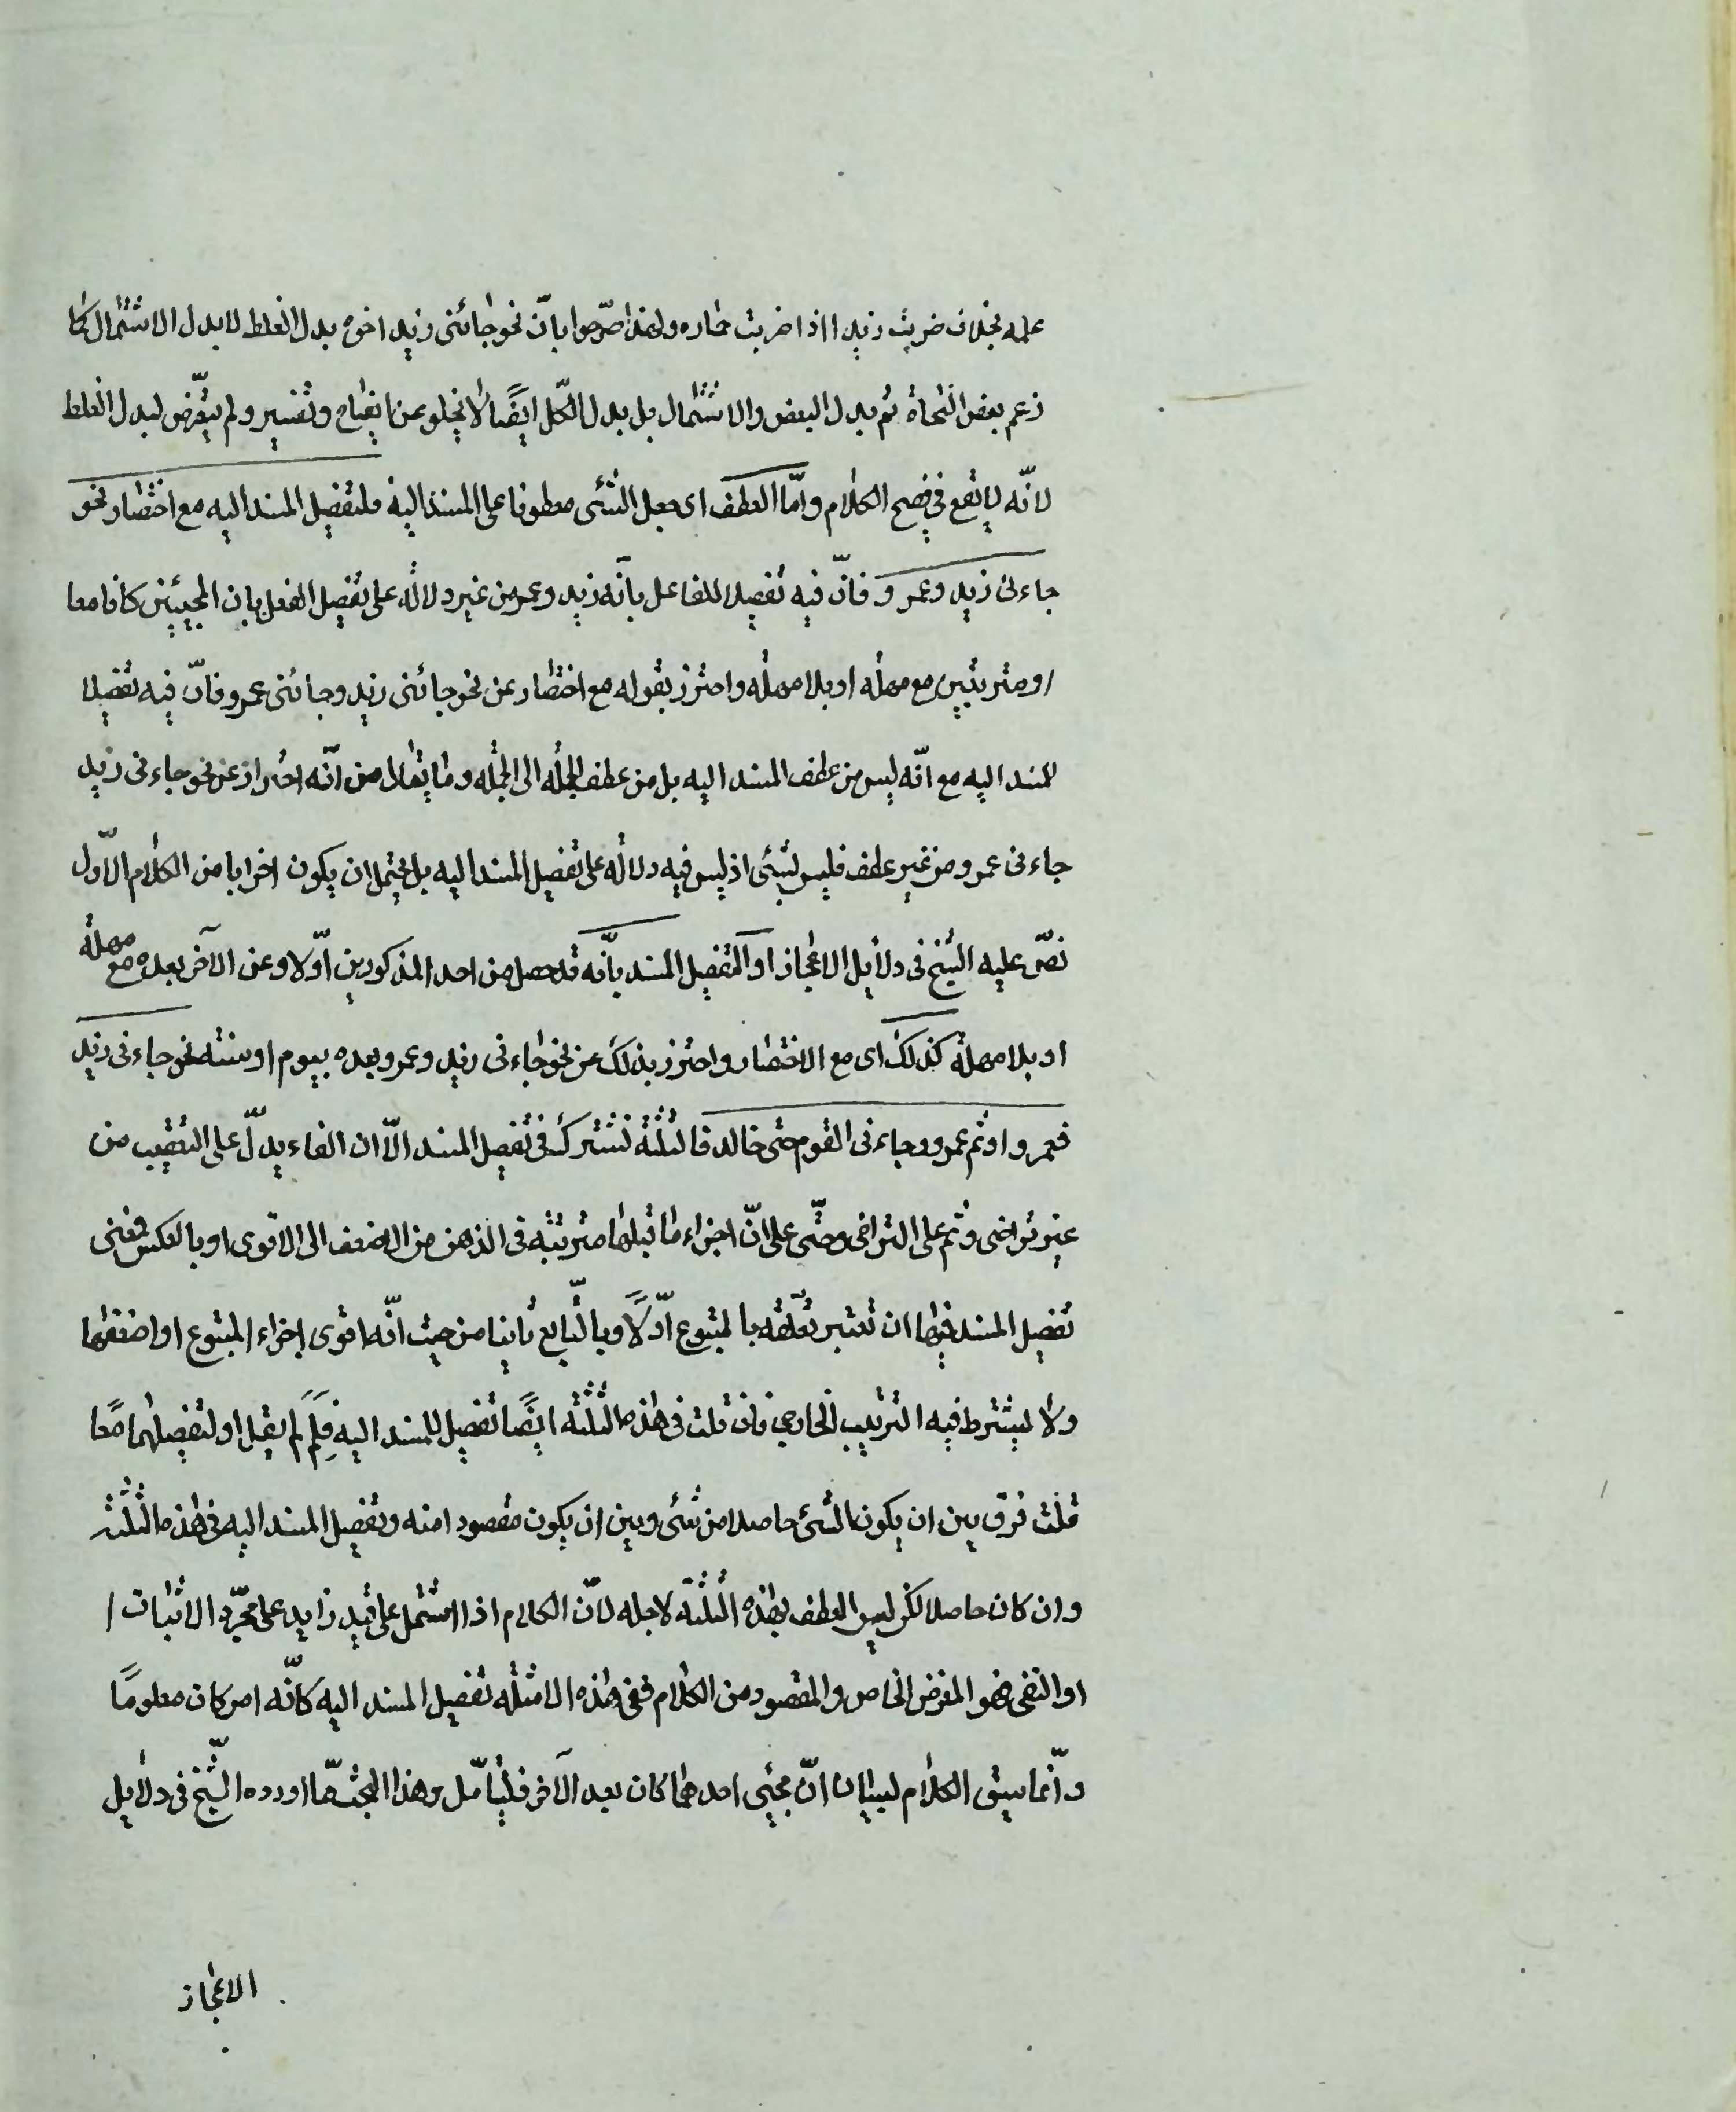 علمه بخلاف ضربت زيدا اذا ضربت حماره ولهذا صرّحوا بانّ نحو جائنى زيد اخوه بدل الغلط لا بدل الاشتمال كما
زعم بعض النحاة ثم بدل البعض والاشتمال بل بدل الكلّ ايضًا لا يخلو عن ايضاح وتفسير ولم يتعّرض لبدل الغلط
لانّه لا يقع فى فصح الكلام وامّا العطف اى جعل الشئى معطوفا على المسند اليه فلتفصيل المسند اليه مع اختصار نحو
جاءنى زيد وعمرو فانّ فيه تفصيلا للفاعل بانّه زيد وعمرو من غير دلالة على تفصيل الفعل بان المجيئين كانا معا
او مترتبين مع مهلة او بلا مهلة واحترز بقوله مع اختصار عن نحو جائنى زيد وجائنى عمرو فانّ فيه تفصيلا
للمسند اليه مع انّه ليس من عطف المسند اليه بل من عطف الجملة الى الجملة وما يقال من انّه احتراز عن نحو جاءنى زيد
جاءنى عمرو من غير عطف فليس بشئى اذ ليس فيه دلالة على تفصيل المسند اليه بل يحتمل ان يكون اضرابا من الكلام الاوّل
نصّ عليه الشيخ فى دلايل الاعجاز او لتفصيل المسند بانّه قد حصل من احد المذكورين اوّلا وعن الآخر بعده مع مهلة
او بلا مهلة كذلك اى مع الاختصار واحترز بذلك عن نحو جاءنى زيد وعمرو بعده بيوم او سنته نحو جاءنى زيد
فعمرو او ثم عمرو وجاءنى القوم حتى خالد فالثلثة تشترك فى تفصيل المسند الّا ان الفاء يدلّ على التعقيب من
غير تراخى وثم على التراخى وحتّى على انّ اجزاء ما قبلها مترتبة فى الذهن من الاضعف الى الاقوى او بالعكس فمعنى
تفصيل المسند فيها ان تعتبر تعلّقه بالمتبوع اوّلًا وبالتّابع ثانيا من حيث انّه اقوى اجزاء المتبوع او اضعفها
ولا يشترط فيه الترتيب الخارجى فان قلت فى هذه الثلثة ايضًا تفصيل للمسند اليه فلِمَ لَم يقل او لتفصيلهما معًا
قلت فرق بين ان يكون الشئ حاصلا من شئى وبين ان يكون مقصودا منه وتفصيل المسند اليه فى هذه الثلثة
وان كان حاصلا لكن ليس العطف بهذه الثلثة لاجله لانّ الكلام اذا اشتمل على قيد زايد على مجرّد الاثبات ا
او النفى فهو الغرض الخاص والمقصود من الكلام ففى هذه الامثلة تفصيل المسند اليه كانّه امر كان معلومًا
وانّما سيق الكلام لبيان انّ مجيئى احدهما كان بعد الآخر فليتامّل وهذا البحث ممّا اورده الشّيخ فى دلايل
الاعجاز